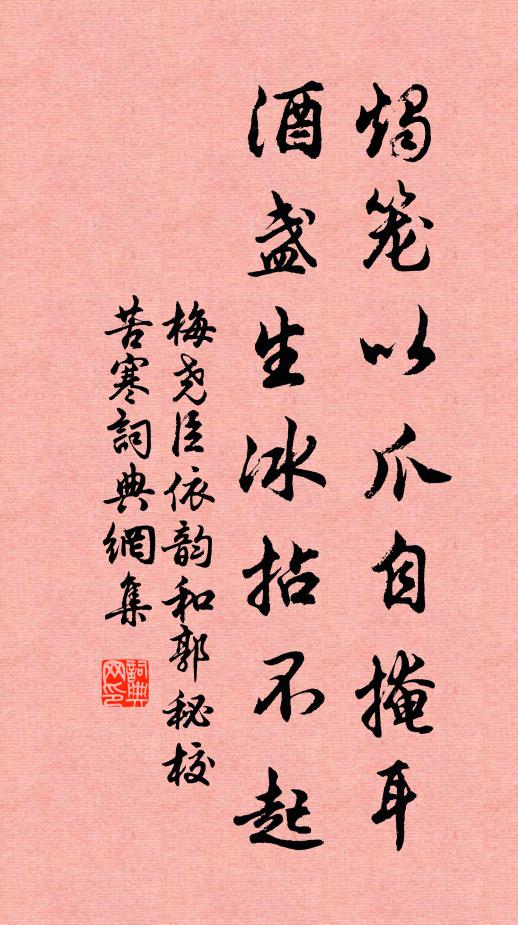 燭笼以爪自掩耳
酒盏生冰拈不起
梅尧臣依韵和郭秘校
苦寒詞典網集
詞典
网印